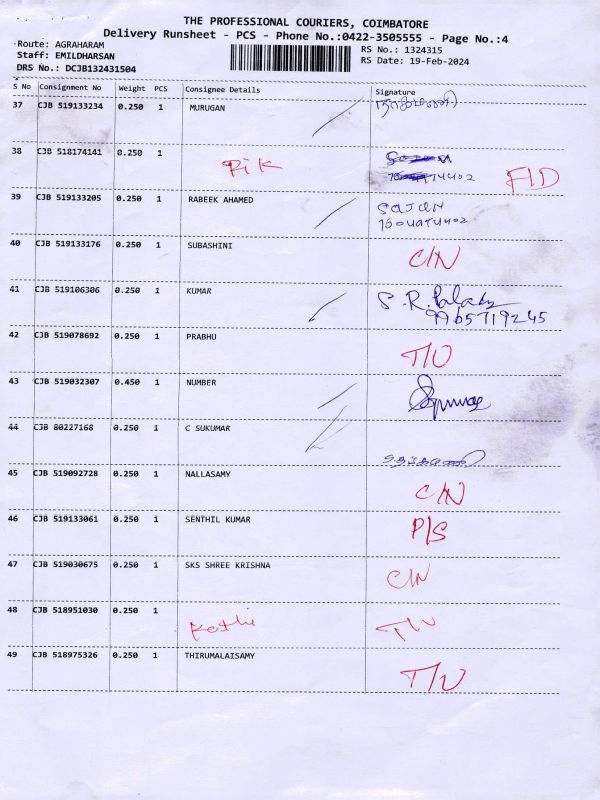 THE PROFESSIONAL COURIERS, COIMBATORE
Delivery Runsheet - PCS - Phone No.:0422-3505555 - Page No.:4
Route: AGRAHARAM RS No.: 1324315
Staff: EMILDHARSAN RS Date: 19-Feb-2024
DRS No.: DCJB132431504
S No Consignment No Weight PCS Consignee Details Signature
37 CJB 519133234 0.250 1 MURUGAN
38 CJB 518174141 0.250 1 F/D
39 CJB 519133205 0.250 1 RABEEK AHAMED SAJAN
40 CJB 519133176 0.250 1 SUBASHINI C/N
41 CJB 519106306 0.250 1 KUMAR S.R.
9965719245
42 CJB 519078692 0.250 1 PRABHU T/U
43 CJB 519032307 0.450 1 NUMBER
44 CJB 80227168 0.250 1 C SUKUMAR
45 CJB 519092728 0.250 1 NALLASAMY C/N
46 CJB 519133061 0.250 1 SENTHIL KUMAR P/S
47 CJB 519030675 0.250 1 SKS SHREE KRISHNA C/N
48 CJB 518951030 0.250 1
49 CJB 518975326 0.250 1 THIRUMALAISAMY T/U